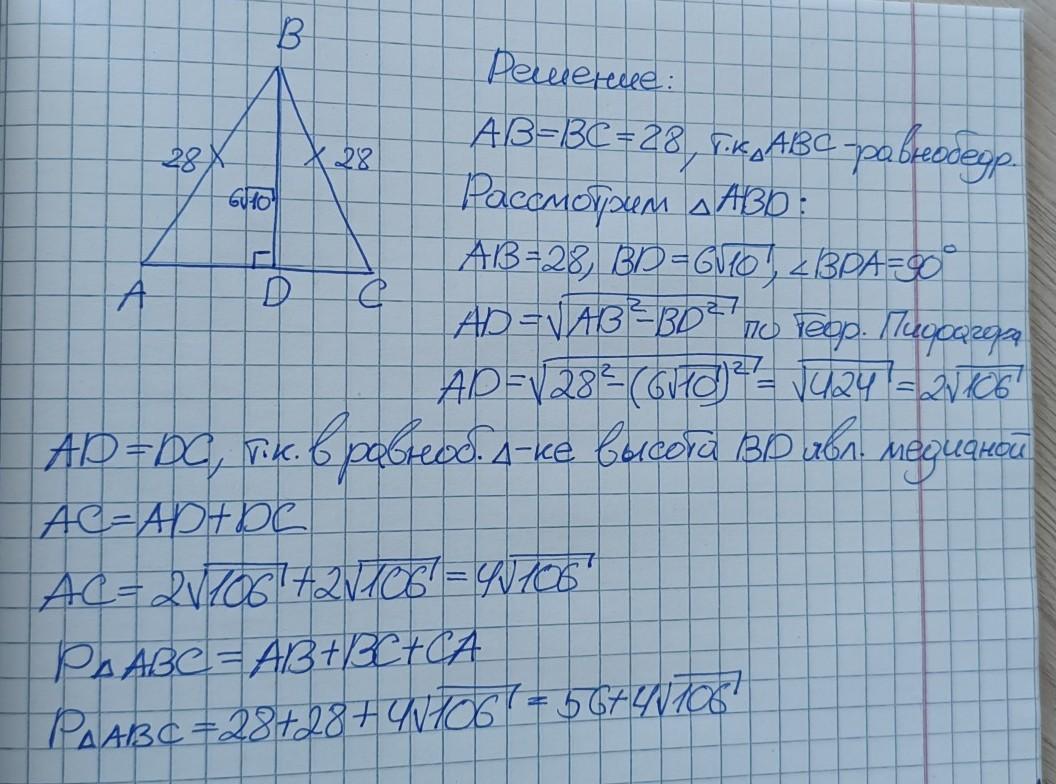 B
Решение:
28 28
AB=BC=28, т.к △ABC-равнобедр.
6√10
Рассмотрим △ABD:
AB=28, BD=6√10, ∠BDA=90°
A D C
AD=√AB²-BD² по теор. Пифагора
AD=√28²-(6√10)²=√424=2√106
AD=DC, т.к. в равноб. △-ке высота BD явл. медианой
AC=AD+DC
AC=2√106+2√106=4√106
P△ABC=AB+BC+CA
P△ABC=28+28+4√106=56+4√106